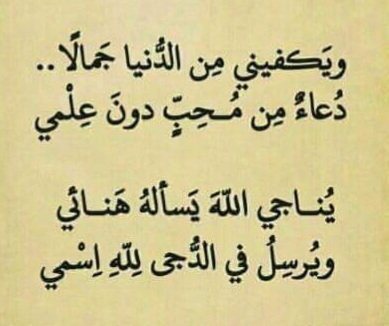 ويَكفيني مِن الدُّنيا جَمالًا..
دُعاءٌ مِن مُـحِبٍّ دونَ عِلْمي
يُنـاجي اللّهَ يَسألهُ هَنـائي
ويُرسِلُ في الدُّجى لِلّهِ اِسْمي